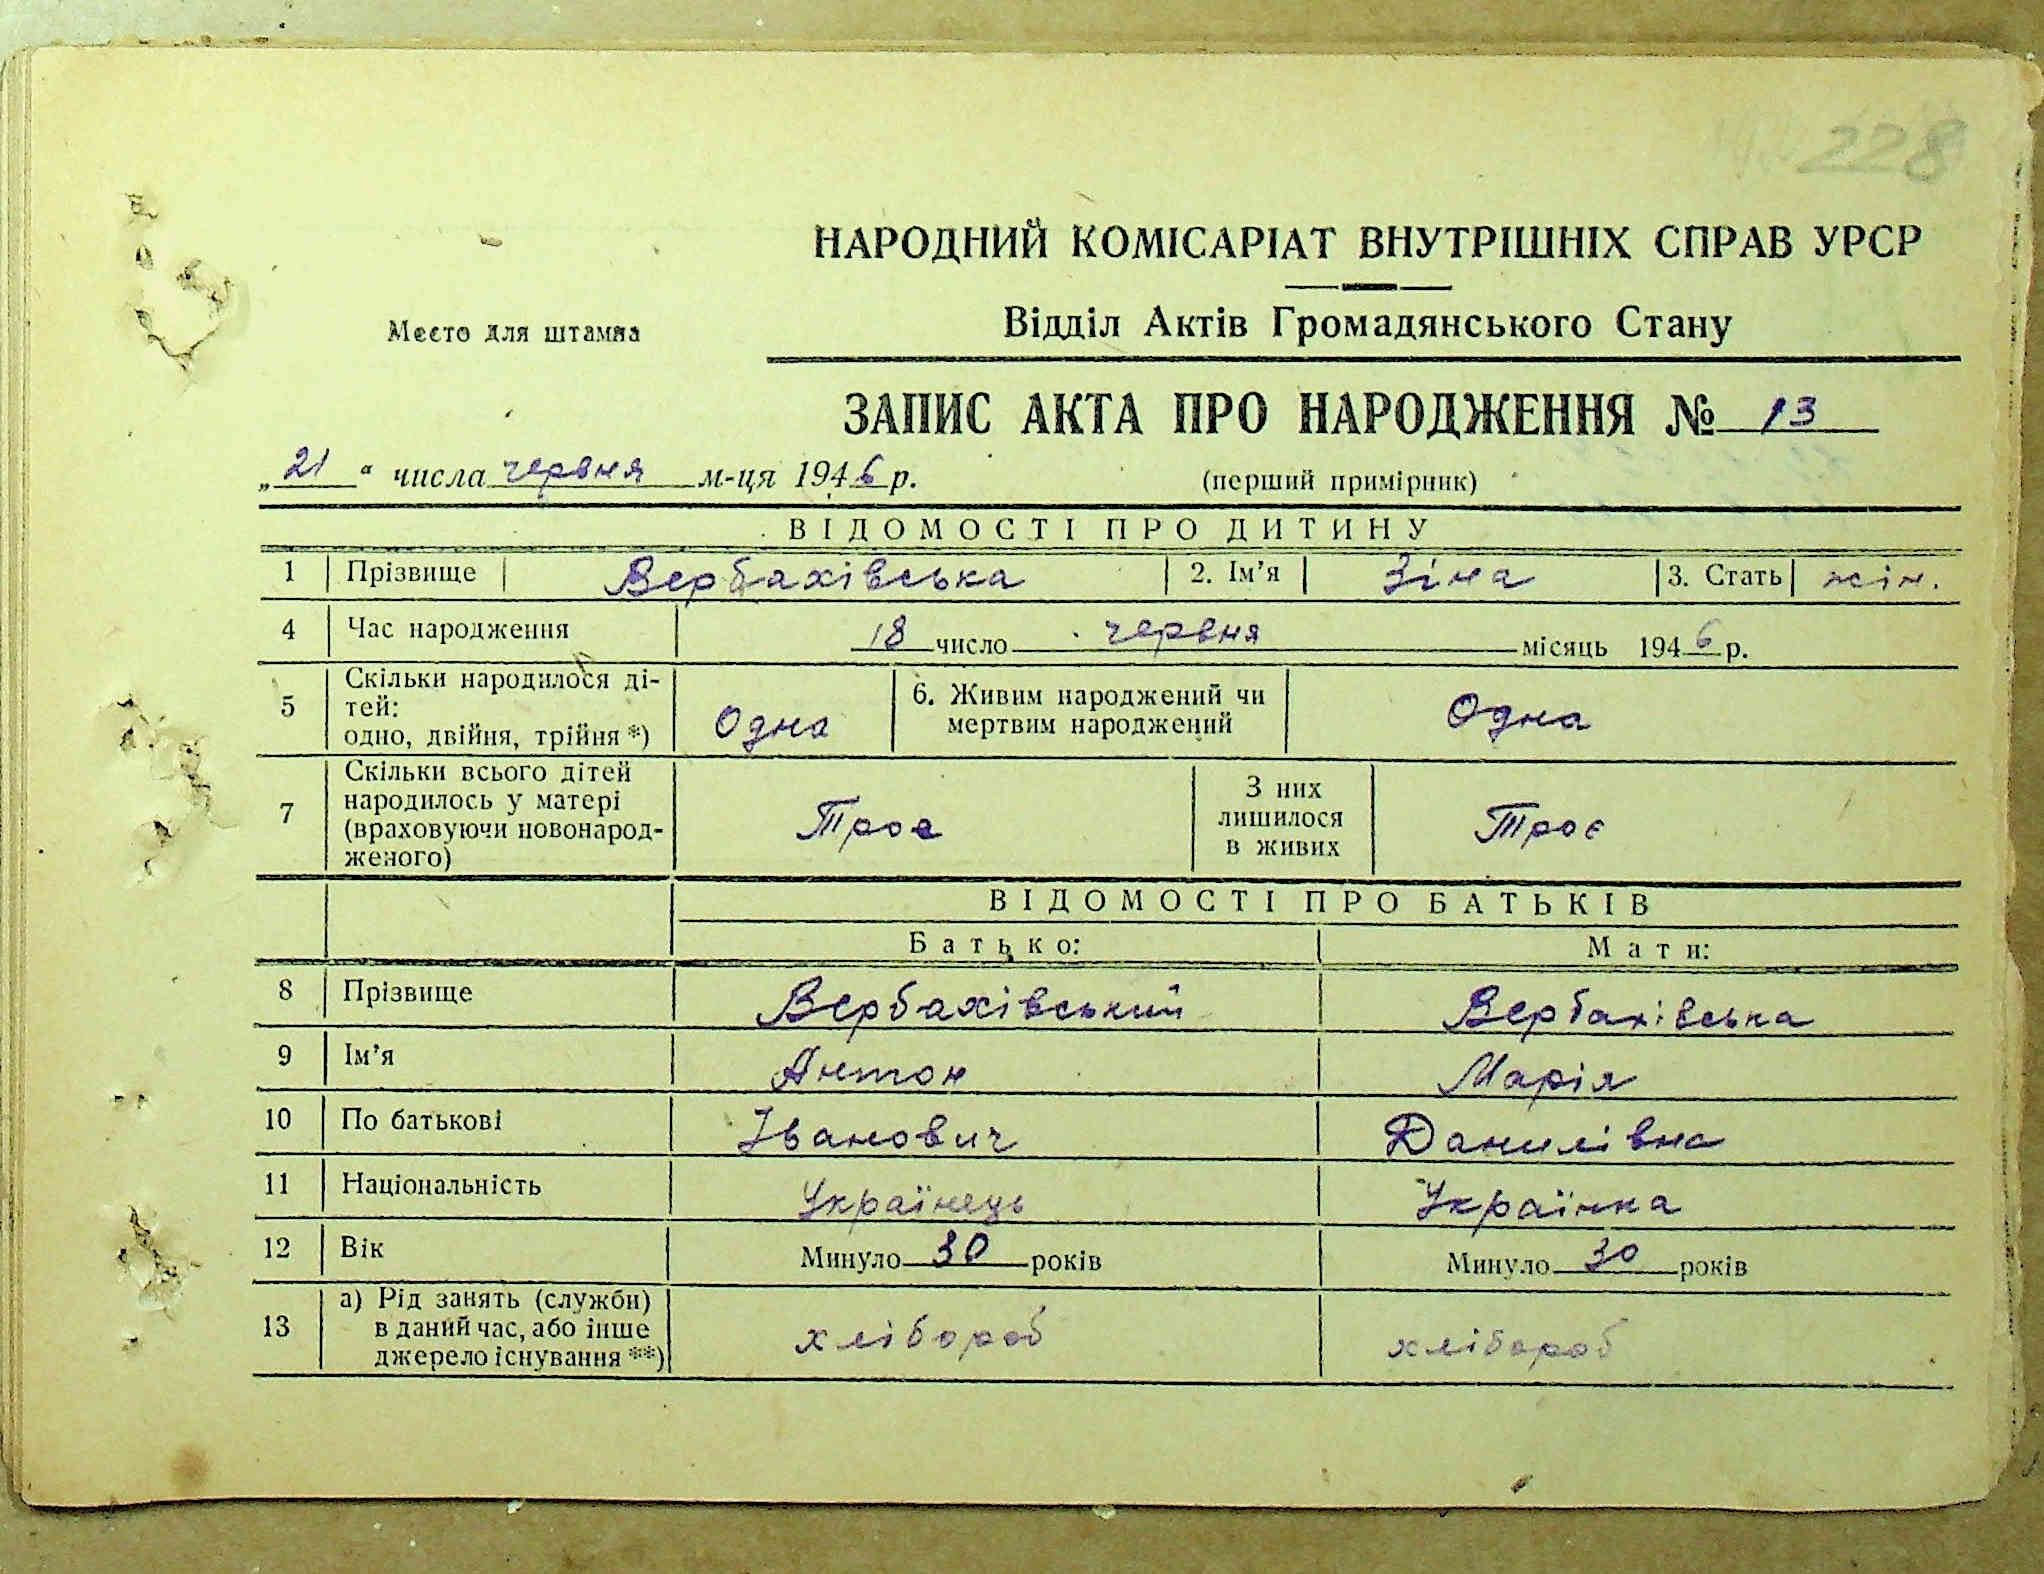 228
НАРОДНИЙ КОМІСАРІАТ ВНУТРІШНІХ СПРАВ УРСР
Место для штампа
Відділ Актів Громадянського Стану
ЗАПИС АКТА ПРО НАРОДЖЕННЯ № 13
„21“ числа червня м-ця 1946 р. (перший примірник)
ВІДОМОСТІ ПРО ДИТИНУ
1 Прізвище Вербахівська 2. Ім’я Зіна 3. Стать жін.
4 Час народження 18 число червня місяць 1946 р.
5 Скільки народилося ді-
тей:
одно, двійня, трійня *) Одна 6. Живим народжений чи
мертвим народжений Одна
7 Скільки всього дітей
народилось у матері
(враховуючи новонарод-
женого) Троє З них
лишилося
в живих Троє
ВІДОМОСТІ ПРО БАТЬКІВ
Батько: Мати:
8 Прізвище Вербахівський Вербахівська
9 Ім’я Антон Марія
10 По батькові Іванович Данилівна
11 Національність Українець Українка
12 Вік Минуло 30 років Минуло 30 років
13 а) Рід занять (служби)
в даний час, або інше
джерело існування **) хлібороб хлібороб